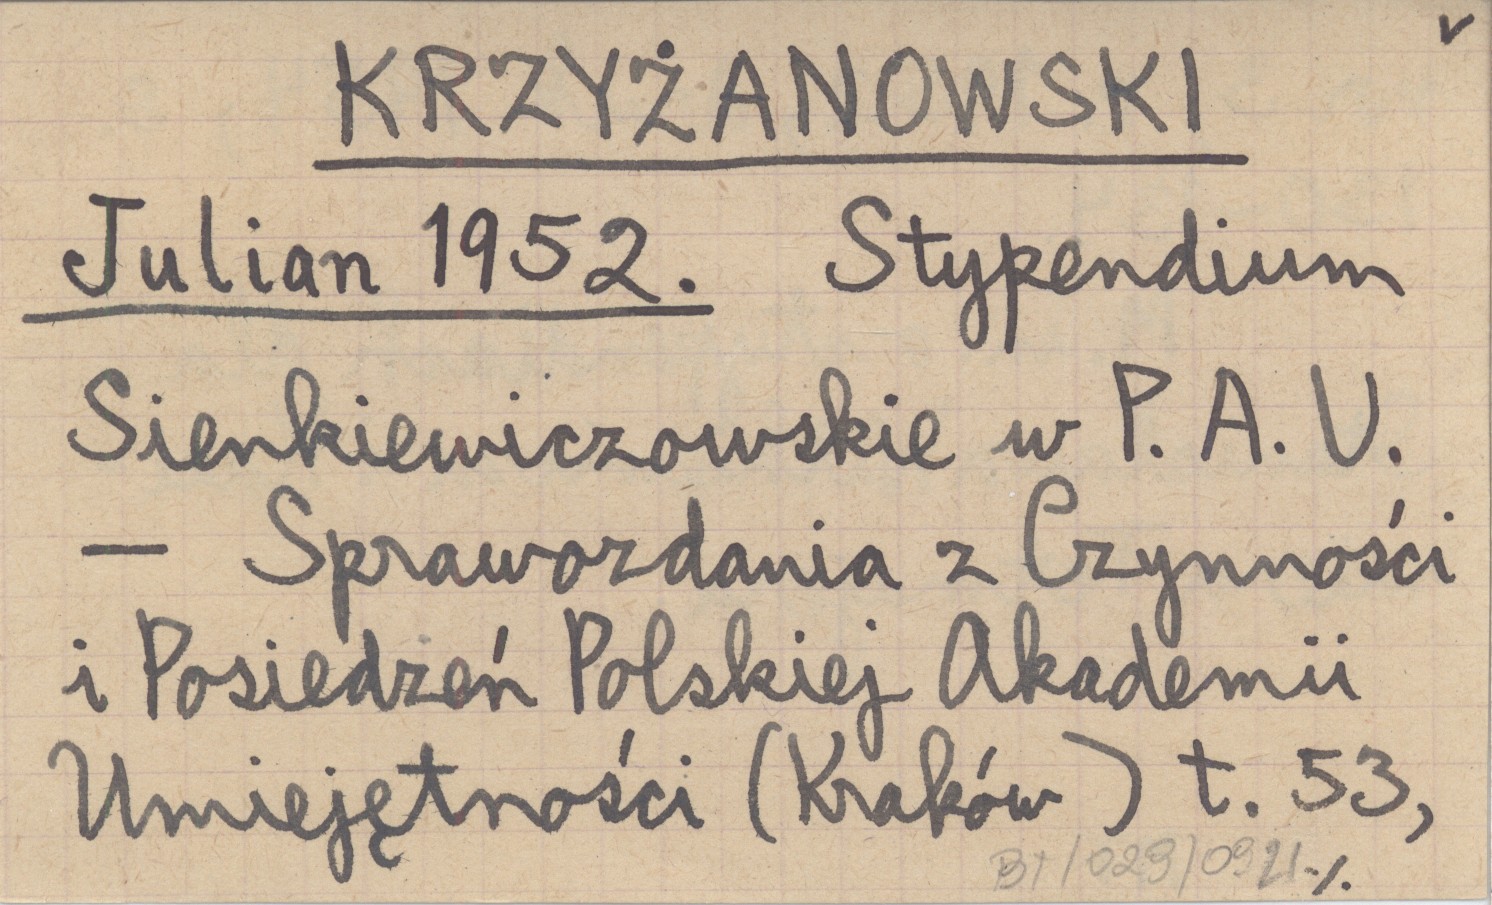 v
KRZYŻANOWSKI
Julian 1952. Stypendium
Sienkiewiczowskie w P. A. U.
— Sprawozdania z Czynności
i Posiedzeń Polskiej Akademii
Umiejętności (Kraków) t. 53,
./.